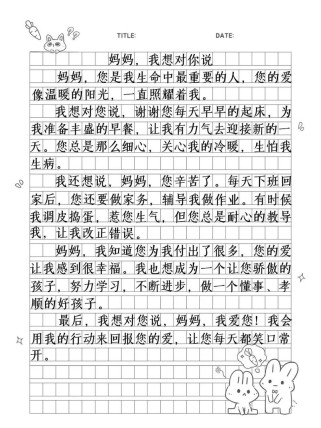 TITLE: DATE:
妈妈，我想对你说
妈妈，您是我生命中最重要的人，您的爱
像温暖的阳光，一直照耀着我。
我想对您说，谢谢您每天早早的起床，为
我准备丰盛的早餐，让我有力气去迎接新的一
天。您总是那么细心，关心我的冷暖，生怕我
生病。
我还想说，妈妈，您辛苦了。每天下班回
家后，您还要做家务，辅导我做作业。有时候
我调皮捣蛋，惹您生气，但您总是耐心的教导
我，让我改正错误。
妈妈，我知道您为我付出了很多，您的爱
让我感到很幸福。我也想成为一个让您骄傲的
孩子，努力学习，不断进步，做一个懂事、孝
顺的好孩子。
最后，我想对您说，妈妈，我爱您！我会
用我的行动来回报您的爱，让您每天都笑口常
开。